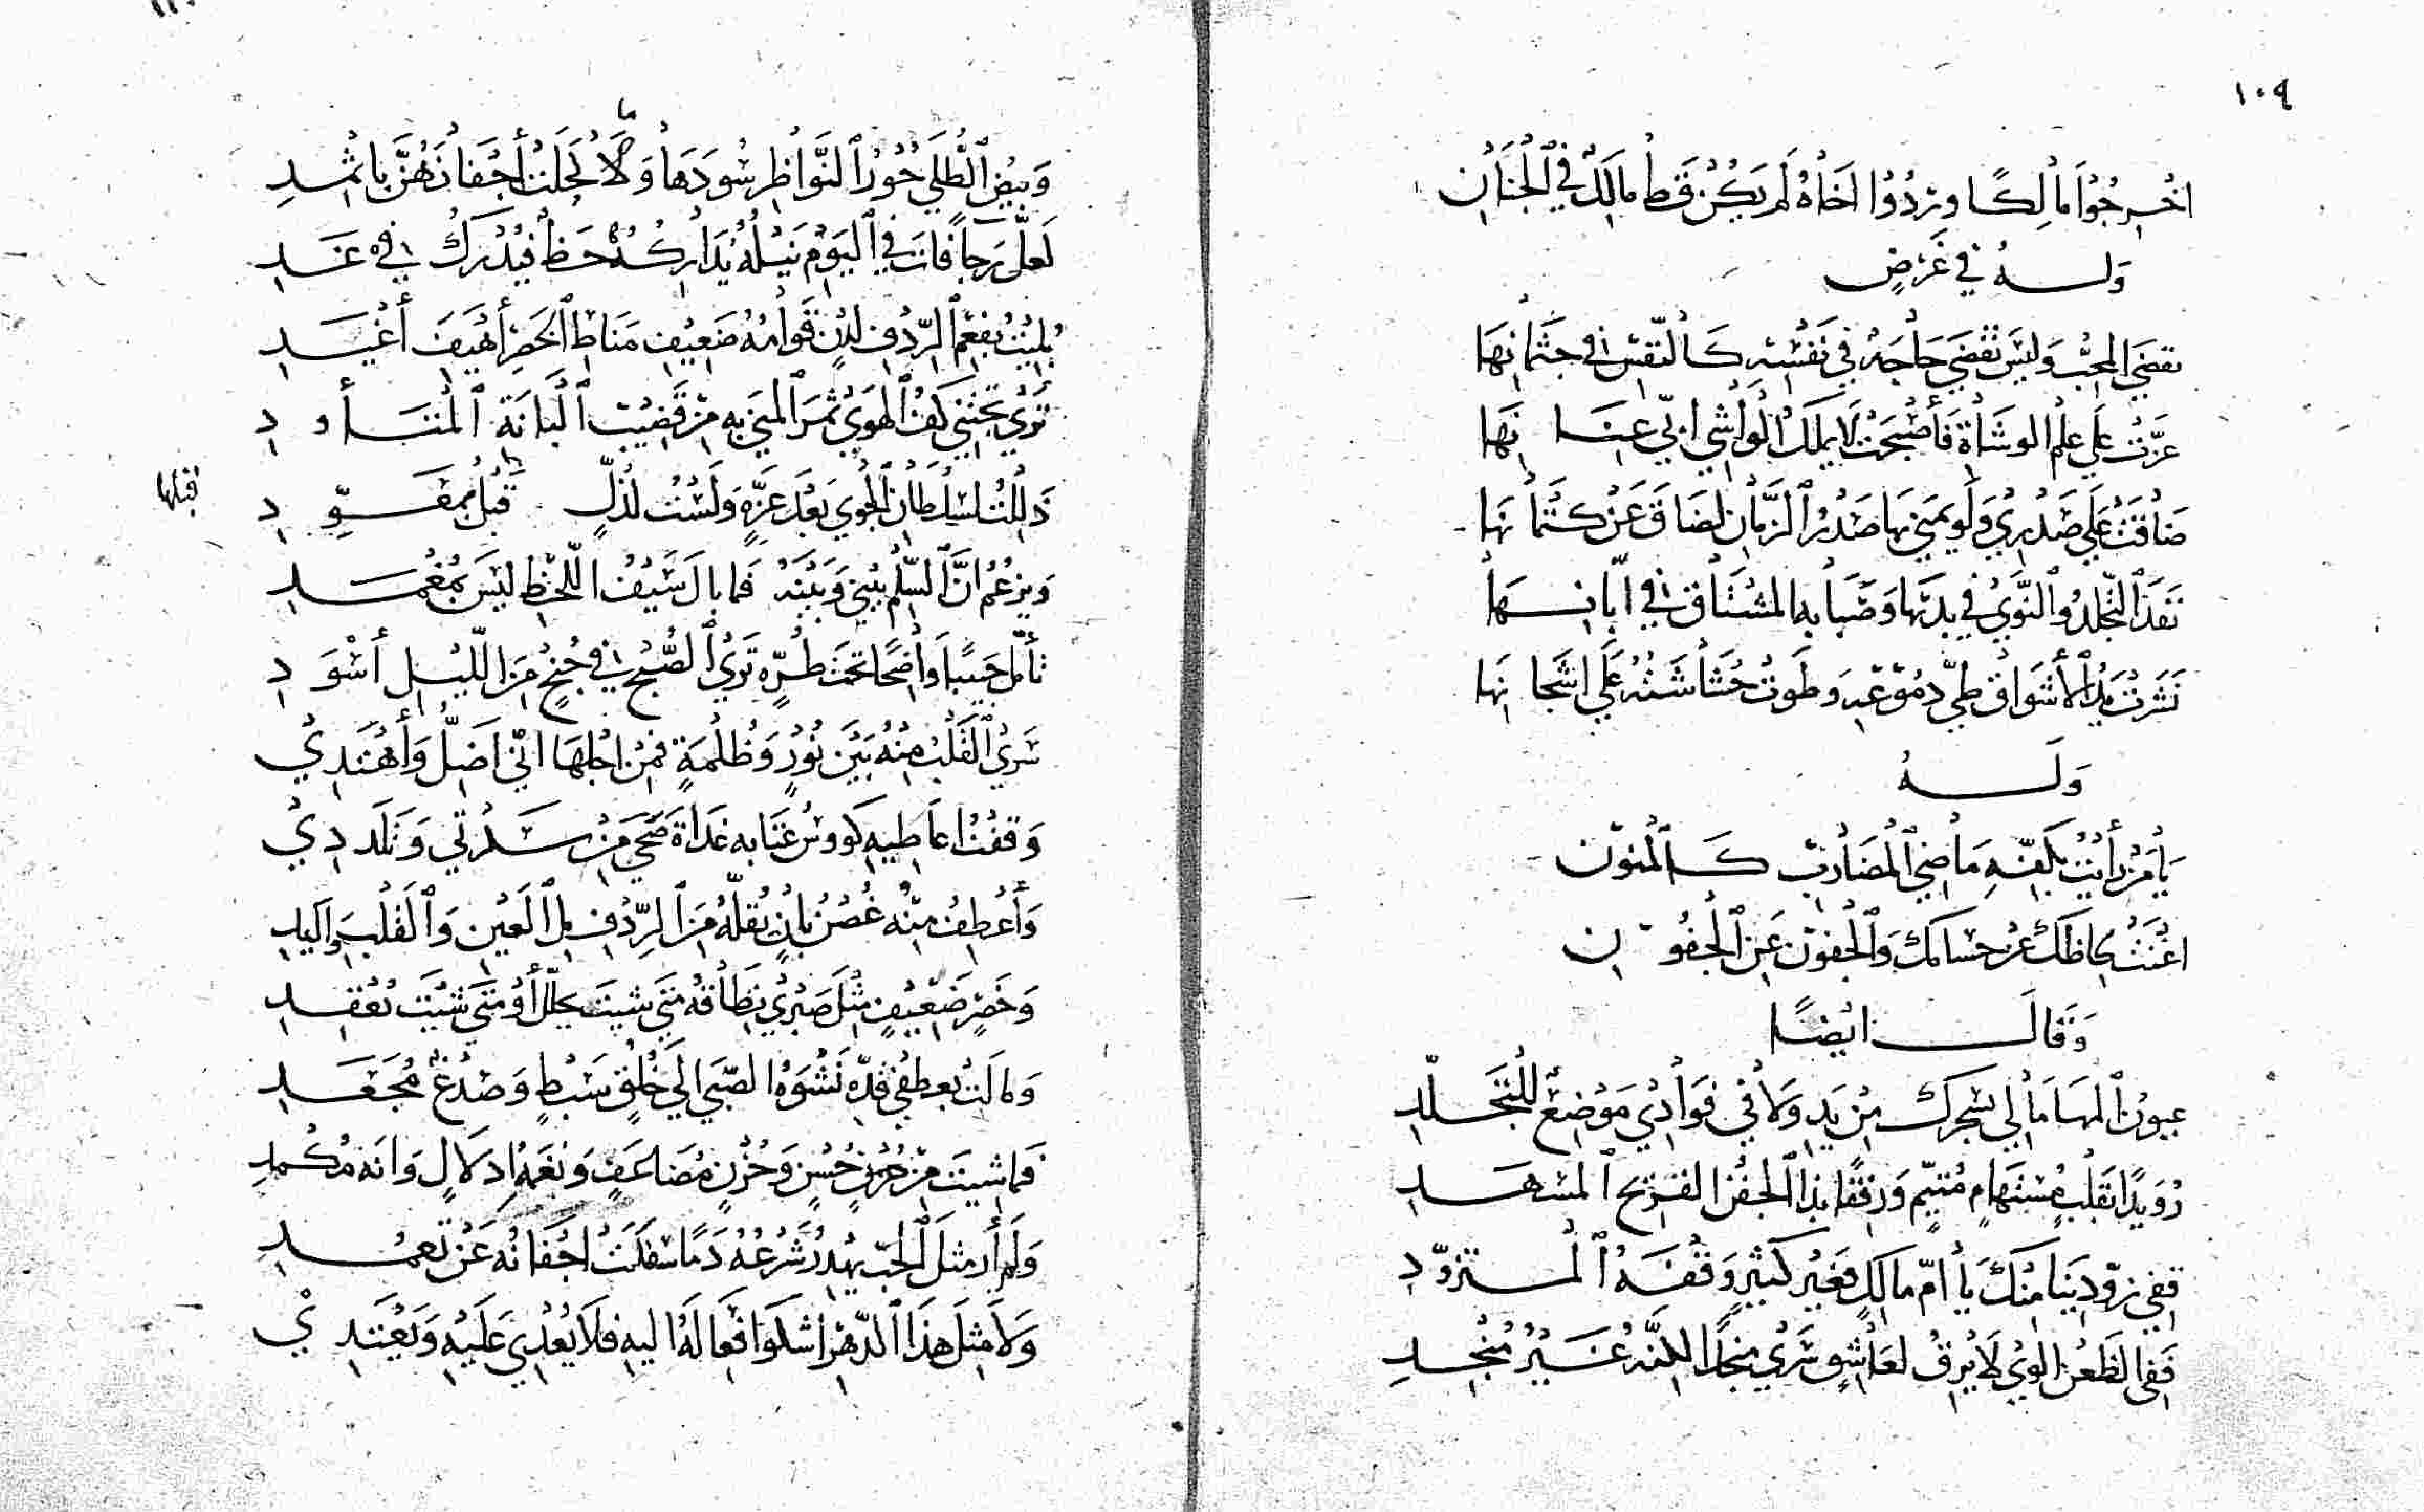 ١٠٩
اخْرِجُوا مَالِكًا وردُّوا أخَاهُ لَم يَكُنْ قَط مالِكٌ في الجْنَانِ
وَلــهُ في غَرَضٍ
تقضَى المحِبُّ وَليسَ تُقْضَي حَاجَهٌ في نَفْسِه كَالنّفسِ في جثمَانِهَا
عزّتْ عَلَي علم الوشَاةِ فَأصْبَحَتْ لَا يملكُ الوَاشي ابيّ عِنَانهَا
ضاقَتْ عَلَي صَدْرِي وَلَو يمني بها صَدْرُ الزّمَانِ لضَاقَ عَنْ كتْمانهَا
نَفَذَ التّجلدُ والنّوَيُ في بدئها وَصَبا بها المشْتَاق في ابّانهَا
نَشَرتْ يَدُ الأشْوَاق طيّ دمُوْعهِ وَطَوتْ حُشَاشَتُهُ عَلَي اشجانهَا
وَلَــهُ
يَا مَنْ رأيْتُ بكَفّهِ مَاضِي المضَاربِ كَالمنون
اغْنتْ لحاظكَ عن حسامكَ وَالجفون عَنِ الجفُونِ
وَقَالَ ايْضًا
عيون المهَا مَا لي بسحركِ مِنْ يَدِ وَلا في فَوَادي مَوْضِعٌ للتجَلّدِ
رُوَيدًا بقَلْبٍ مُستهَامٍ مُتيّمٍ وَرِفقًا بذا الجفْن القَريح المسهدِ
قفي زوّدِينَا مِنْكَ يَا أمّ مالِكٍ فغَيْر كَثيرٍ وَقْفَةُ المتزوّدِ
فَفي الظعْن الوي لَا يَرِقُّ لعَاشِقٍ سَرَي منجدًا لكنّهُ غَيْرُ مُنْجدِ
وَبيْضِ الطلَي حُوْرِ النّواظِر سُودَهَا وَلَمَا كحَلتْ أجْفانَهُنَّ باثمدِ
لَعلّ رَجاً فَاتَ في اليَوْم نَيْلُهُ يُدَارِكُهُ حَظٌّ فيُدْرَكُ في غَدِ
بُليْتُ بفعْم الرِّدْفِ لدْنٍ قَوَامُهُ ضَعيْفِ مَنَاطِ الخَصْرِ أهيَفَ أغْيَدِ
تَرَيْ يجْتَني كَفُّ الهوَيْ ثمَرَ المنَي به مِنْ قَضِيْبِ البَانَةِ المتَأودِ
ذَللتُ لسُلْطَانِ الجوي بَعْدَ عزّهِ وَلَسْتُ لذُلٍّ قَبْلُ بمقَوّدِ
قبلها
وَيزعُمُ انَّ السّلْمَ بيْني وَبَيْنَهُ فَما بال سَيْف اللّحْظِ ليْسَ بمُغْمَدِ
تأمّل جَبيْناً وَاضحًا تحت طُرّه تَرَيْ الصُّبْح في جُنْحٍ مِن اللّيْلِ أسْوَدِ
سَرَيْ القَلْبُ مِنْهُ بَيْنَ نُوْرٍ وَظُلمَةٍ فَمِنْ اجْلهَا انّي اضَلُّ وَأهْتَدِيْ
وَقفْتُ اعَاطيهِ كووسَ عتَابه غَدَاة ضُحًي مِنْ سَكْرتي وَتَلَددِيْ
وَأعْطِفُ مِنْهُ غُصْنُ بَانٍ يُقلّهُ مِنَ الرّدْفِ مِل العَيْنِ وَالقَلْبِ وَاليدِ
وَخَصْرٍ ضَعِيْفٍ مثلَ صَبْرِيْ نِطَاقُهُ مَتي شيتَ يحلَل أوْ مَتي شئْتَ يُعْقَدِ
وَمالَتْ بعطفيْ قدّه نَشْوَةُ الصّبَي الَي خُلْقٍ سَبْطٍ وَصُدْغٍ مُجعّدِ
فَما شيتَ مِنْ حُسْنٍ وَحُزْنٍ مُضَاعَفٍ وَنغمَةِ ادلالٍ وَانّه مُكْمَدِ
وَلَم أرَ مثلَ الحبّ يهْدرُ شَرْعُهُ دَمًا سَفَكَتْ اجْفَانُه عَنْ تَعَمُّدِ
وَلا مِثلَ هذَا الدّهْرِ اشكوا فعَالَهُ اليهِ فلَا يُعْدي عَلَيْهِ وَيَعْتَدِيْ